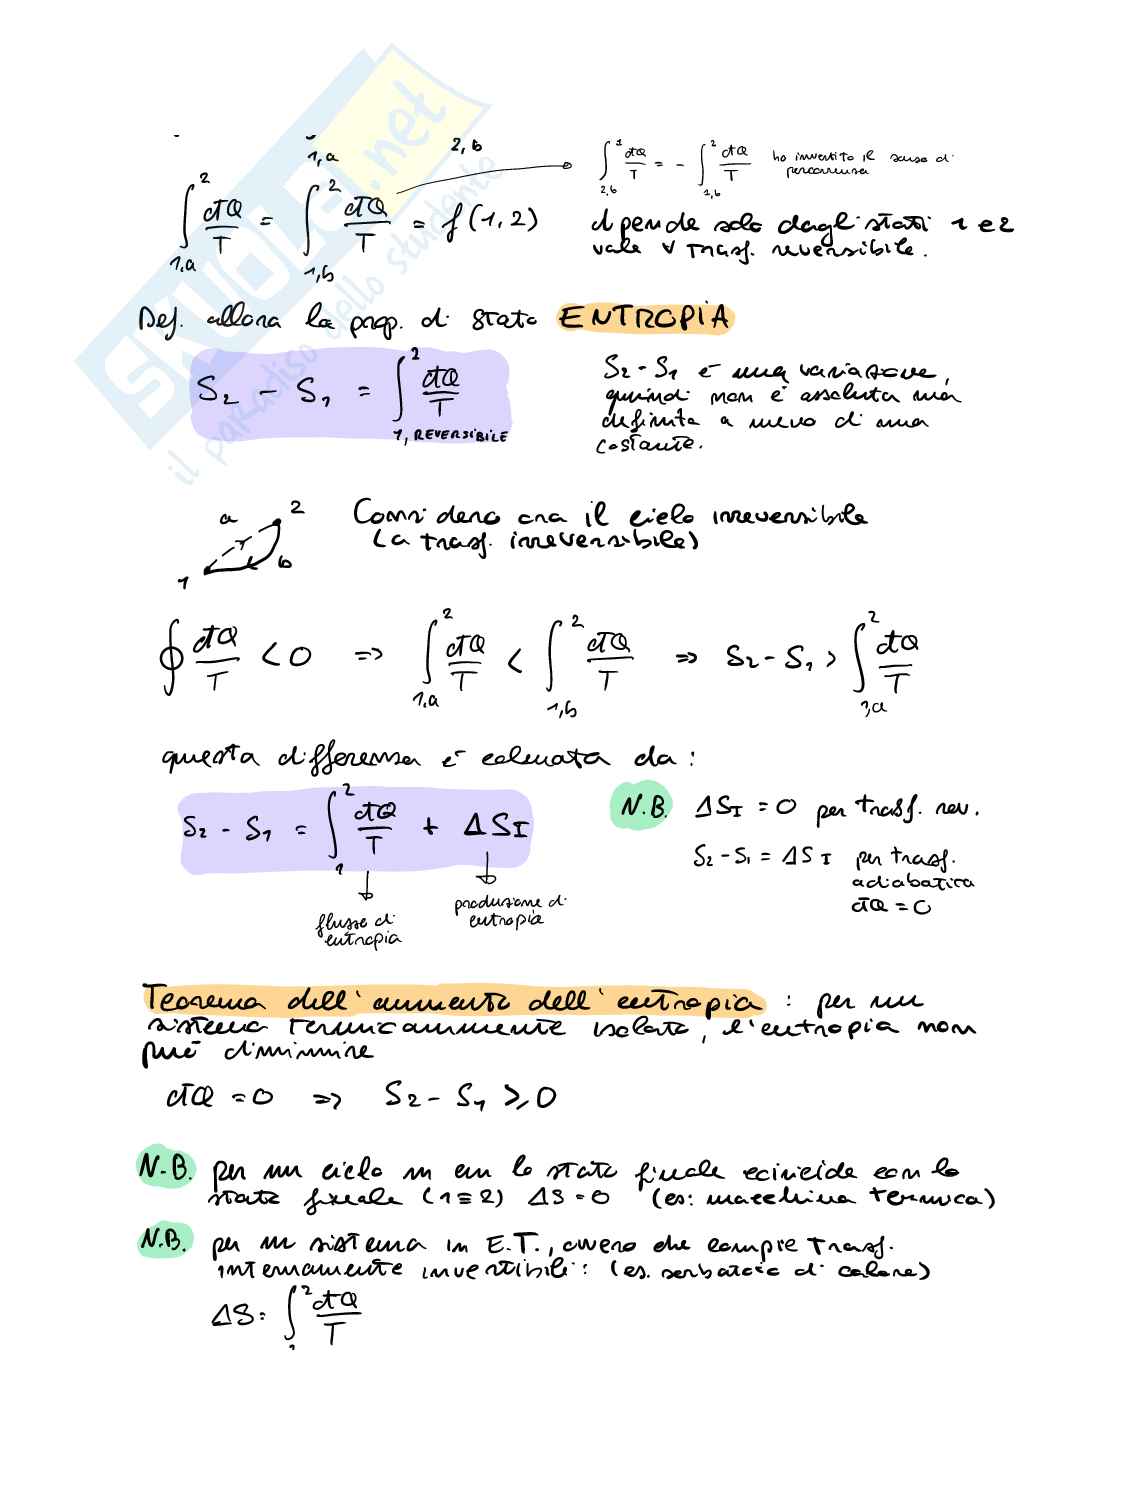 SKUOLA.net
il paradiso dello studente
1,a 2,b
∫_{1,a}^{2} đQ/T = ∫_{1,b}^{2} đQ/T = f(1,2)
∫_{2,b}^{1} đQ/T = - ∫_{1,b}^{2} đQ/T ho invertito il senso di
percorrenza
dipende solo dagli stati 1 e 2
vale ∀ trasf. reversibile.
Def. allora la prop. di stato ENTROPIA
S2 - S1 = ∫_{1, REVERSIBILE}^{2} đQ/T
S2 - S1 è una variazione,
quindi non è assoluta ma
definita a meno di una
costante.
a 2
1 b
Considero ora il ciclo irreversibile
(a trasf. irreversibile)
∮ đQ/T < 0 => ∫_{1,a}^{2} đQ/T < ∫_{1,b}^{2} đQ/T => S2 - S1 > ∫_{1,a}^{2} đQ/T
questa differenza è colmata da:
S2 - S1 = ∫_{1}^{2} đQ/T + ΔSI
flusso di
entropia
produzione di
entropia
N.B. ΔSI = 0 per trasf. rev.
S2 - S1 = ΔSI per trasf.
adiabatica
đQ = 0
Teorema dell'aumento dell'entropia : per un
sistema termicamente isolato, l'entropia non
può diminuire
đQ = 0 => S2 - S1 ≥ 0
N.B. per un ciclo in cui lo stato finale coincide con lo
stato finale (1≡2) ΔS = 0 (es: macchina termica)
N.B. per un sistema in E.T., ovvero che compie trasf.
internamente invertibili: (es. serbatoio di calore)
ΔS = ∫_{1}^{2} đQ/T